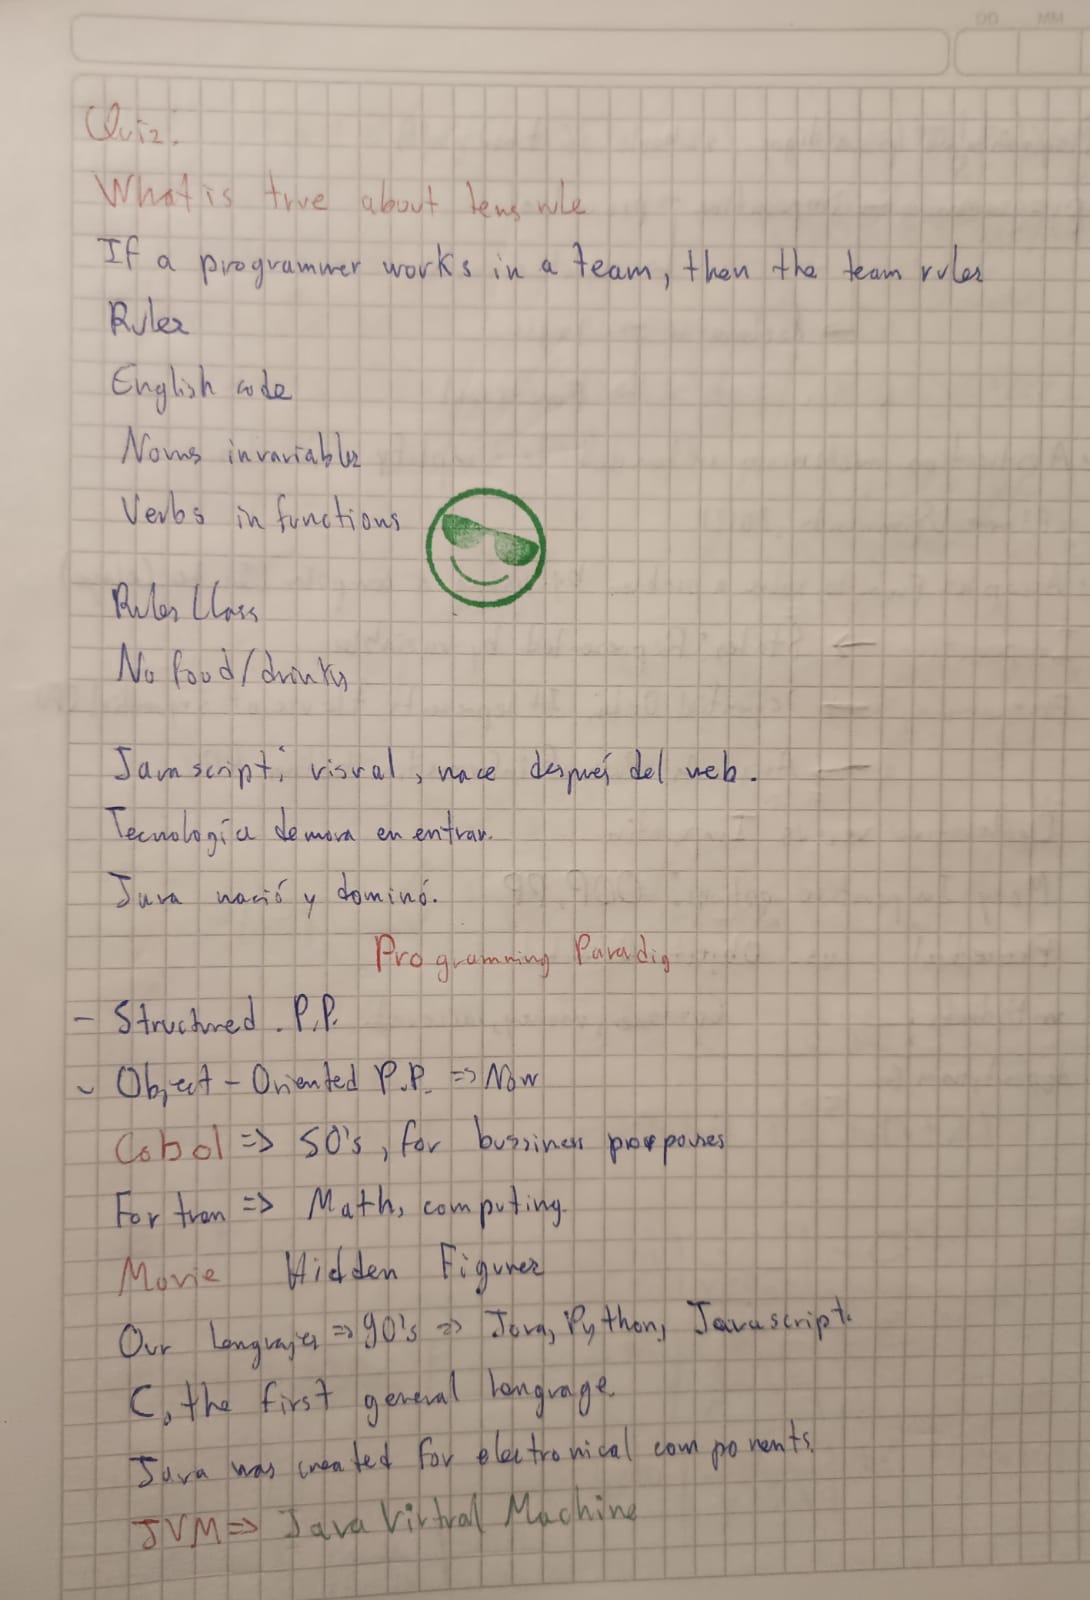 DD MM
Quiz:
What is true about tems rule
If a programmer works in a team, then the team rules
Rules
English code
Nouns invariables
Verbs in functions
Rules Class
No food/drinks
Javascript; visual, nace después del web.
Tecnología demora en entrar.
Java nació y dominó.
Programming Paradig
- Structured. P.P.
- Object-Oriented P.P. => Now
Cobol => 50's, for bussiness porposes
Fortran => Math, computing.
Movie Hidden Figures
Our lenguajes => 90's => Java, Python, Javascript.
C, the first general lenguage.
Java was created for electronical components.
JVM => Java Virtual Machine